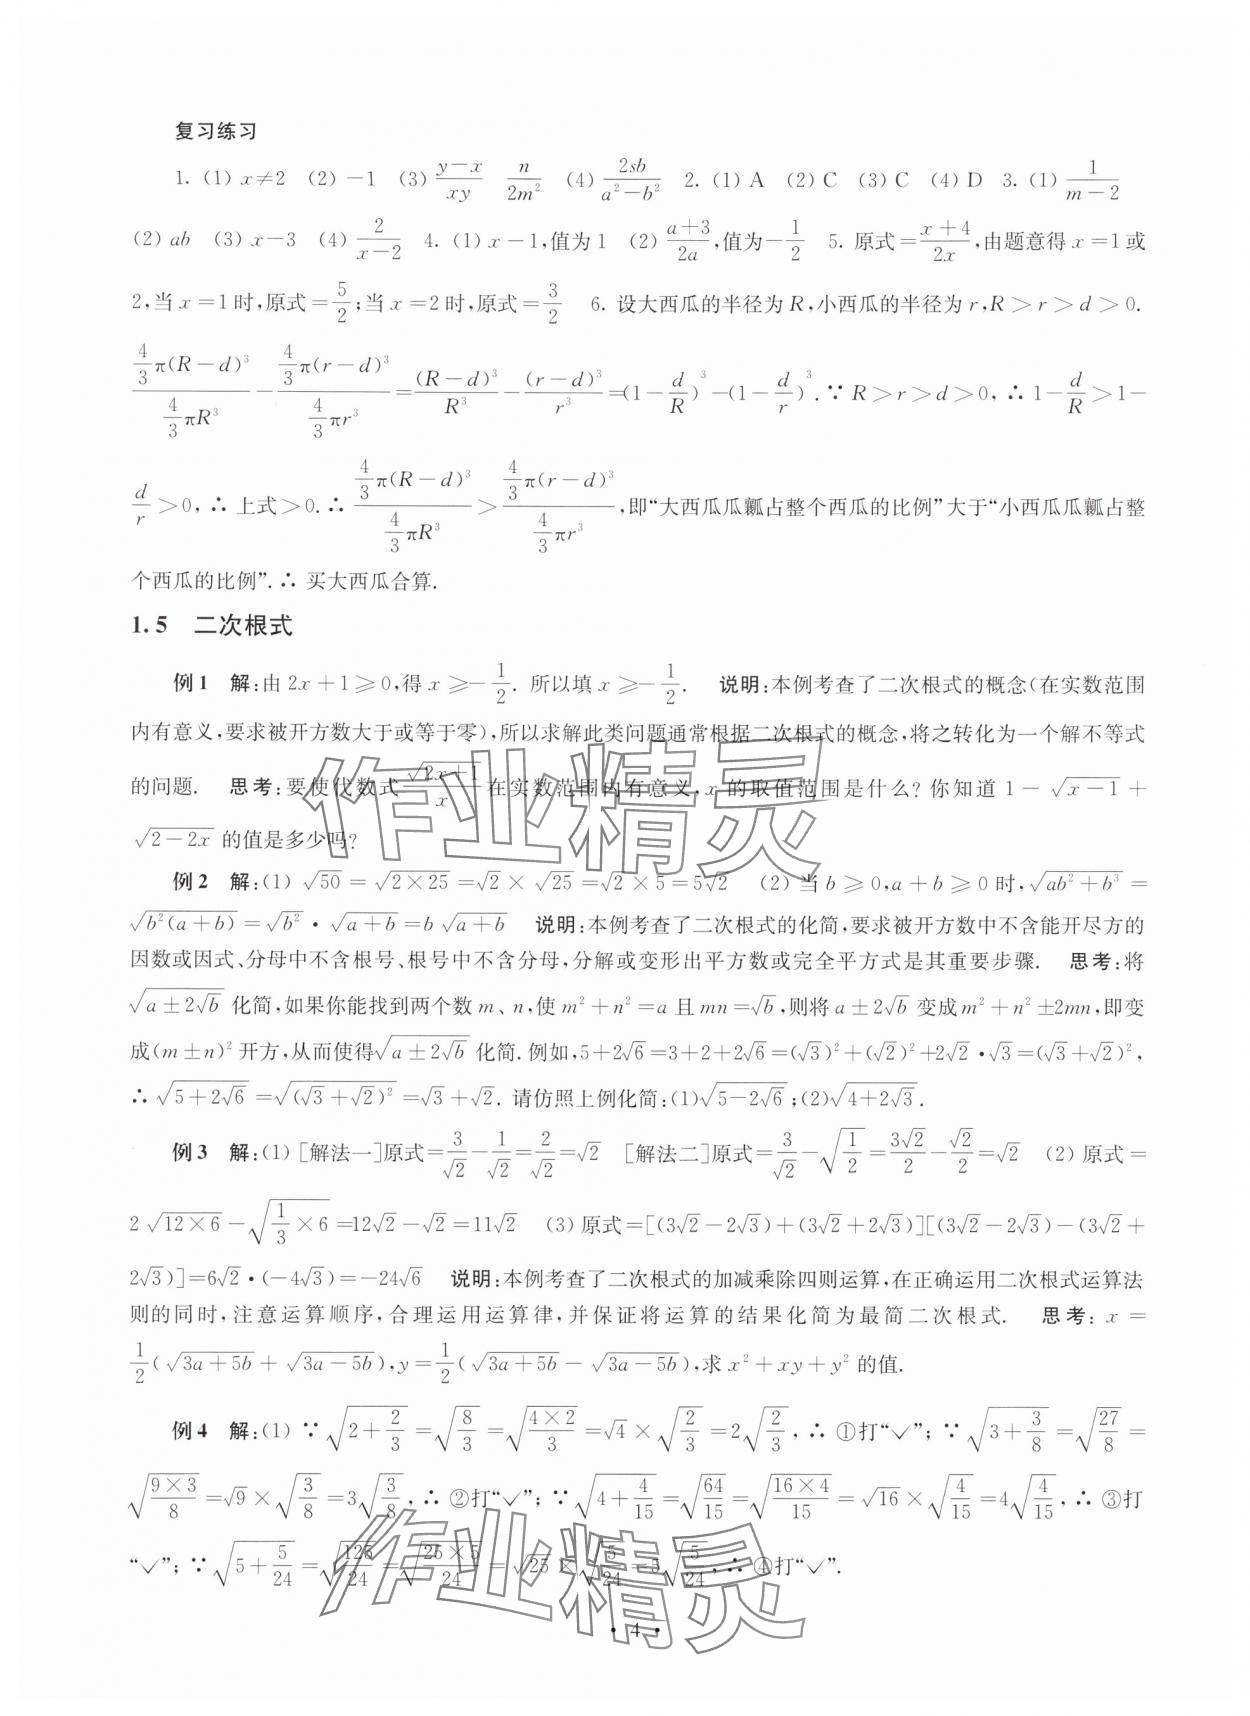 复习练习
1. (1) x≠2 (2) −1 (3) \frac{y−x}{xy} \frac{n}{2m²} (4) \frac{2sb}{a²−b²} 2. (1) A (2) C (3) C (4) D 3. (1) \frac{1}{m−2}
(2) ab (3) x−3 (4) \frac{2}{x−2} 4. (1) x−1,值为1 (2) \frac{a+3}{2a},值为−\frac{1}{2} 5. 原式=\frac{x+4}{2x},由题意得 x=1或
2,当 x=1时,原式=\frac{5}{2};当 x=2时,原式=\frac{3}{2} 6. 设大西瓜的半径为 R,小西瓜的半径为 r,R>r>d>0.
\frac{\frac{4}{3}π(R−d)³}{\frac{4}{3}πR³}−\frac{\frac{4}{3}π(r−d)³}{\frac{4}{3}πr³}=\frac{(R−d)³}{R³}−\frac{(r−d)³}{r³}=(1−\frac{d}{R})³−(1−\frac{d}{r})³.∵ R>r>d>0,∴ 1−\frac{d}{R}>1−
\frac{d}{r}>0,∴ 上式>0.∴ \frac{\frac{4}{3}π(R−d)³}{\frac{4}{3}πR³}>\frac{\frac{4}{3}π(r−d)³}{\frac{4}{3}πr³},即“大西瓜瓜瓤占整个西瓜的比例”大于“小西瓜瓜瓤占整
个西瓜的比例”.∴ 买大西瓜合算.
1.5 二次根式
例1 解:由 2x+1≥0,得 x≥−\frac{1}{2}. 所以填 x≥−\frac{1}{2}. 说明:本例考查了二次根式的概念(在实数范围
内有意义,要求被开方数大于或等于零),所以求解此类问题通常根据二次根式的概念,将之转化为一个解不等式
的问题. 思考:要使代数式\frac{√(2x+1)}{x}在实数范围内有意义,x 的取值范围是什么?你知道 1−√(x−1)+
√(2−2x) 的值是多少吗?
例2 解:(1) √50=√(2×25)=√2×√25=√2×5=5√2 (2) 当 b≥0,a+b≥0 时,√(ab²+b³)=
√(b²(a+b))=√b²·√(a+b)=b√(a+b) 说明:本例考查了二次根式的化简,要求被开方数中不含能开尽方的
因数或因式、分母中不含根号、根号中不含分母,分解或变形出平方数或完全平方式是其重要步骤. 思考:将
√(a±2√b) 化简,如果你能找到两个数 m、n,使 m²+n²=a 且 mn=√b,则将 a±2√b 变成 m²+n²±2mn,即变
成(m±n)²开方,从而使得√(a±2√b) 化简.例如,5+2√6=3+2+2√6=(√3)²+(√2)²+2√2·√3=(√3+√2)²,
∴ √(5+2√6)=√((√3+√2)²)=√3+√2. 请仿照上例化简:(1)√(5−2√6);(2)√(4+2√3).
例3 解:(1) [解法一]原式=\frac{3}{√2}−\frac{1}{√2}=\frac{2}{√2}=√2 [解法二]原式=\frac{3}{√2}−√(\frac{1}{2})=\frac{3√2}{2}−\frac{√2}{2}=√2 (2) 原式=
2√(12×6)−√(\frac{1}{3}×6)=12√2−√2=11√2 (3) 原式=[(3√2−2√3)+(3√2+2√3)][(3√2−2√3)−(3√2+
2√3)]=6√2·(−4√3)=−24√6 说明:本例考查了二次根式的加减乘除四则运算,在正确运用二次根式运算法
则的同时,注意运算顺序,合理运用运算律,并保证将运算的结果化简为最简二次根式. 思考: x=
\frac{1}{2}(√(3a+5b)+√(3a−5b)),y=\frac{1}{2}(√(3a+5b)−√(3a−5b)),求 x²+xy+y² 的值.
例4 解:(1) ∵ √(2+\frac{2}{3})=√(\frac{8}{3})=√(\frac{4×2}{3})=√4×√(\frac{2}{3})=2√(\frac{2}{3}),∴ ①打“✓”;∵ √(3+\frac{3}{8})=√(\frac{27}{8})=
√(\frac{9×3}{8})=√9×√(\frac{3}{8})=3√(\frac{3}{8}),∴ ②打“✓”;∵ √(4+\frac{4}{15})=√(\frac{64}{15})=√(\frac{16×4}{15})=√16×√(\frac{4}{15})=4√(\frac{4}{15}),∴ ③打
“✓”;∵ √(5+\frac{5}{24})=√(\frac{125}{24})=√(\frac{25×5}{24})=√25×√(\frac{5}{24})=5√(\frac{5}{24}),∴ ④打“✓”.
· 4 ·
作业精灵
作业精灵